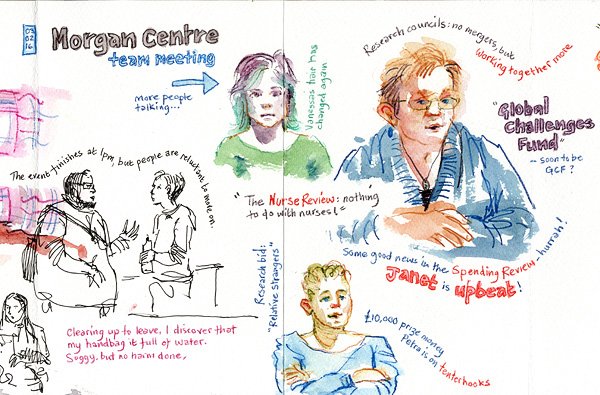 03
02
16
Morgan Centre
team meeting
more people
talking...
Vanessa's hair has
changed again
Research councils: no mergers, but
working together more
"Global
Challenges
Fund"
-- soon to be
GCF?
The event finishes at 1pm, but people are reluctant to move on.
"The Nurse Review: nothing
to do with nurses!"
Some good news in the Spending Review - hurrah!
Janet is upbeat!
Research bid:
"Relative Strangers"
£10,000 prize money
Petra is on tenterhooks
Clearing up to leave, I discover that
my handbag it full of water.
Soggy, but no harm done,